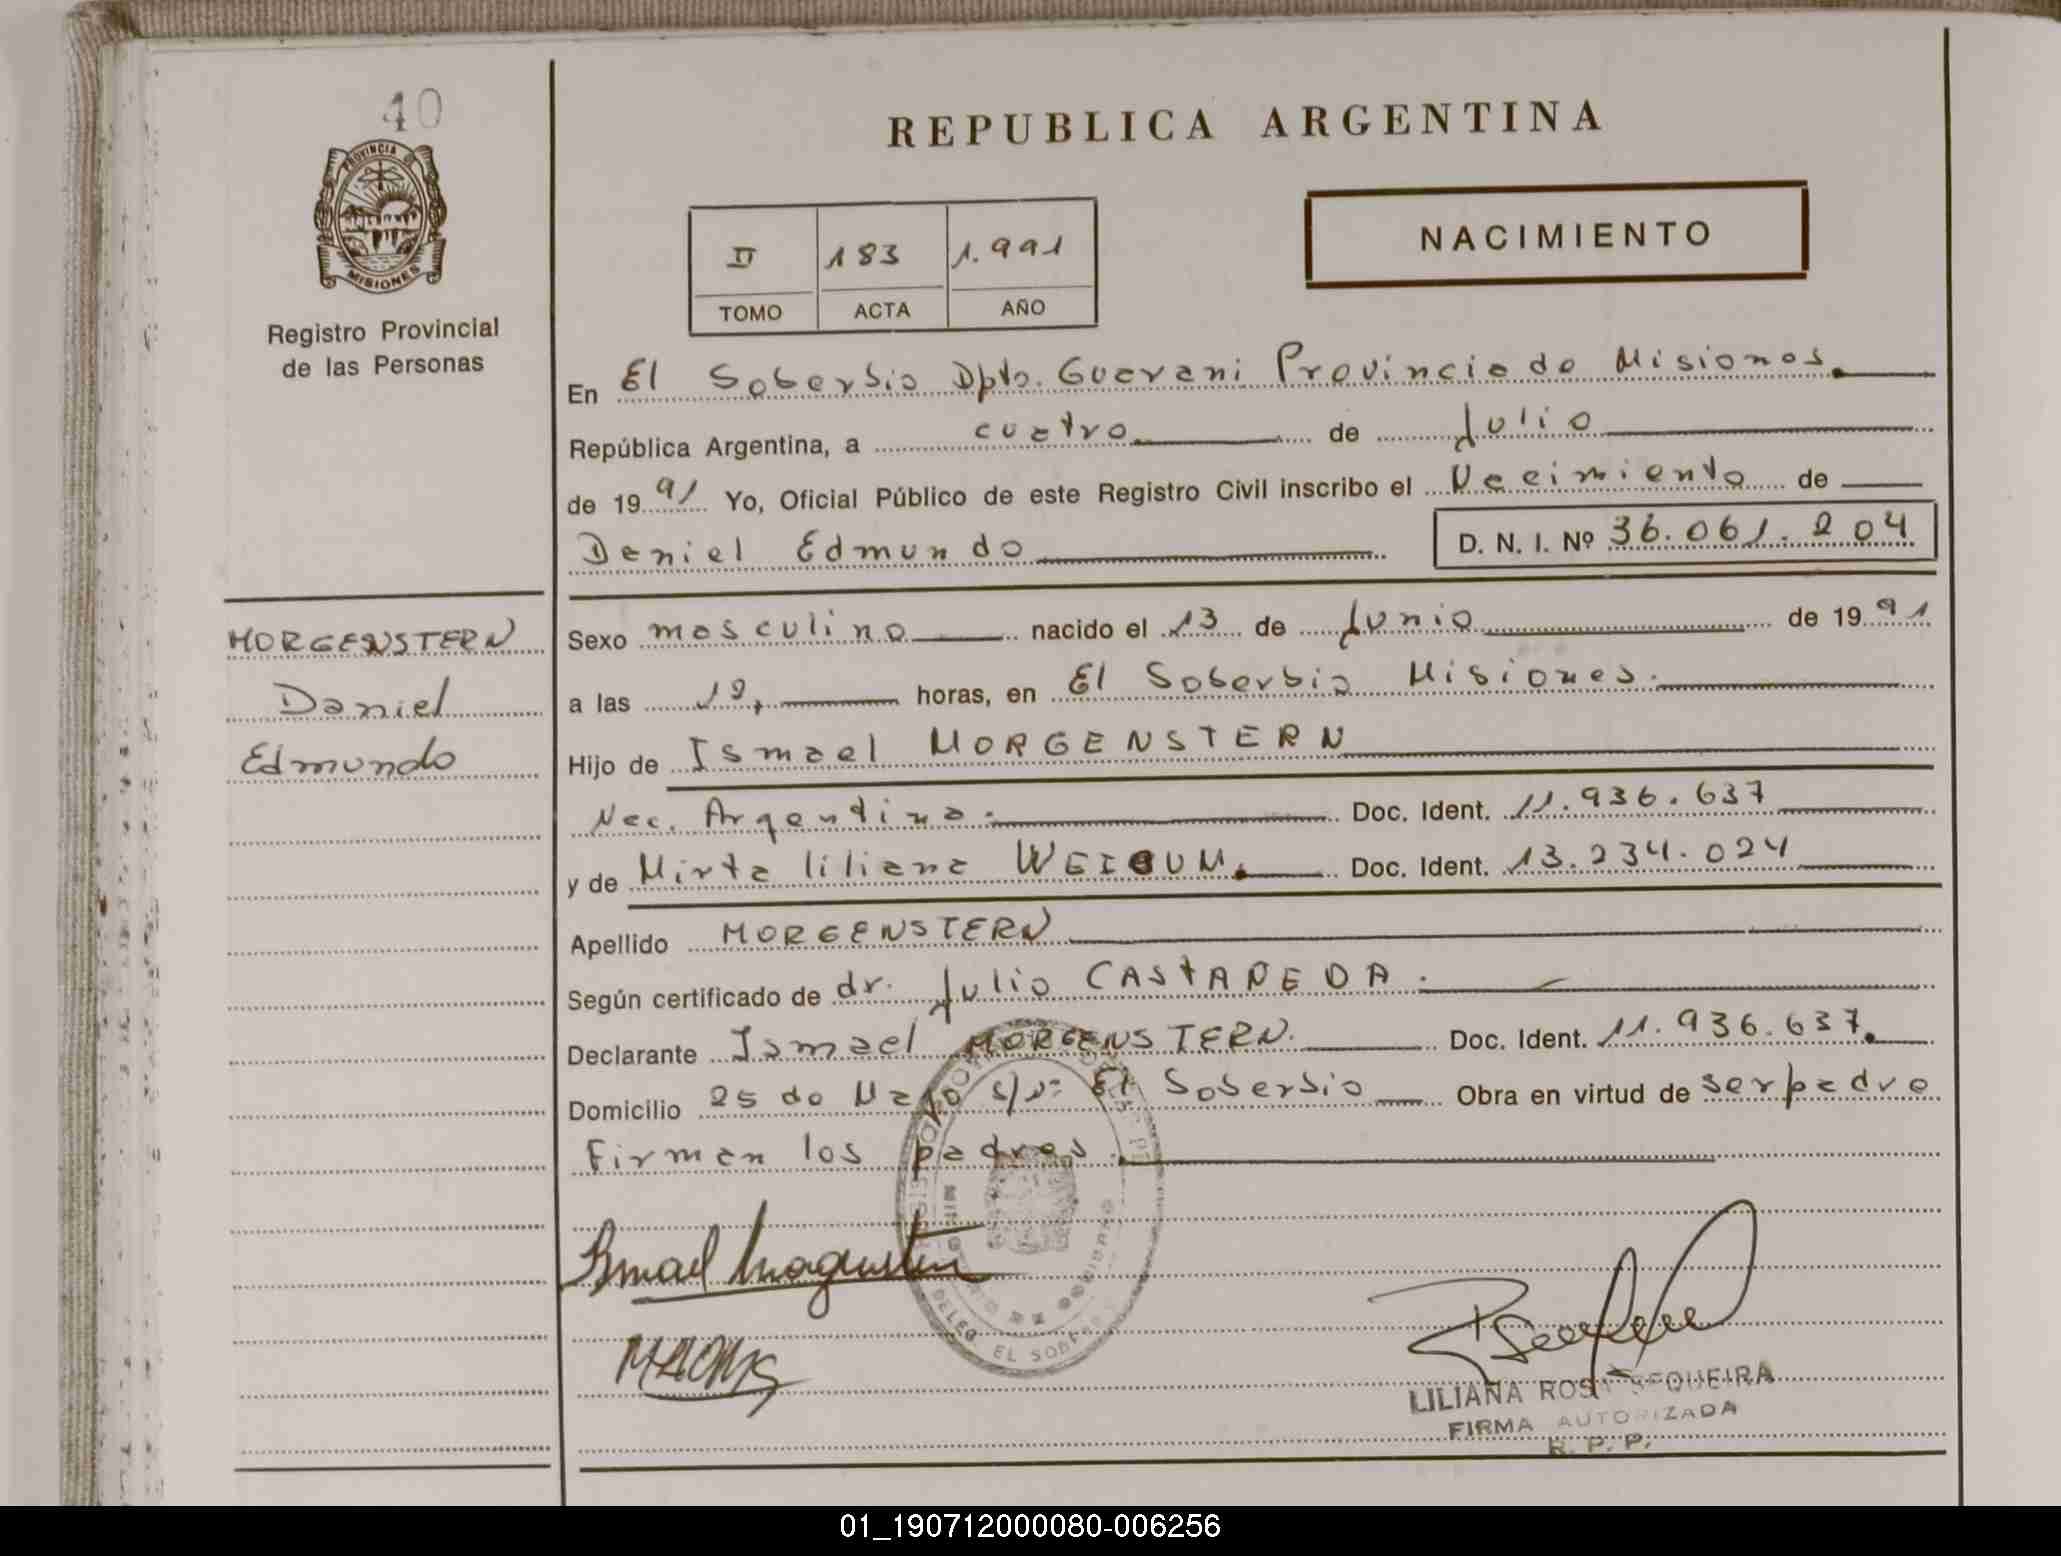 40
PROVINCIA DE
MISIONES
Registro Provincial
de las Personas
REPUBLICA ARGENTINA
II 183 1.991
TOMO ACTA AÑO
NACIMIENTO
En El Soberbio Dpto. Guarani Provincia de Misiones.
República Argentina, a cuatro de Julio
de 1991 Yo, Oficial Público de este Registro Civil inscribo el Nacimiento de
Daniel Edmundo D. N. I. Nº 36.061.204
MORGENSTERN
Daniel
Edmundo
Sexo masculino nacido el 13 de Junio de 1991
a las 12, horas, en El Soberbio Misiones.
Hijo de Ismael MORGENSTERN
Nac. Argentina. Doc. Ident. 11.936.637
y de Mirta liliana Doc. Ident. 13.234.024
Apellido MORGENSTERN
Según certificado de dr. Julio CASTAÑEDA.
Declarante Ismael MORGENSTERN. Doc. Ident. 11.936.637.
Domicilio 25 de Mayo s/nº El Soberbio Obra en virtud de ser padre
Firman los padres.
Ismael
DELEG. EL SOBERBIO
LILIANA ROSA SEQUEIRA
FIRMA AUTORIZADA
R. P. P.
01_190712000080-006256